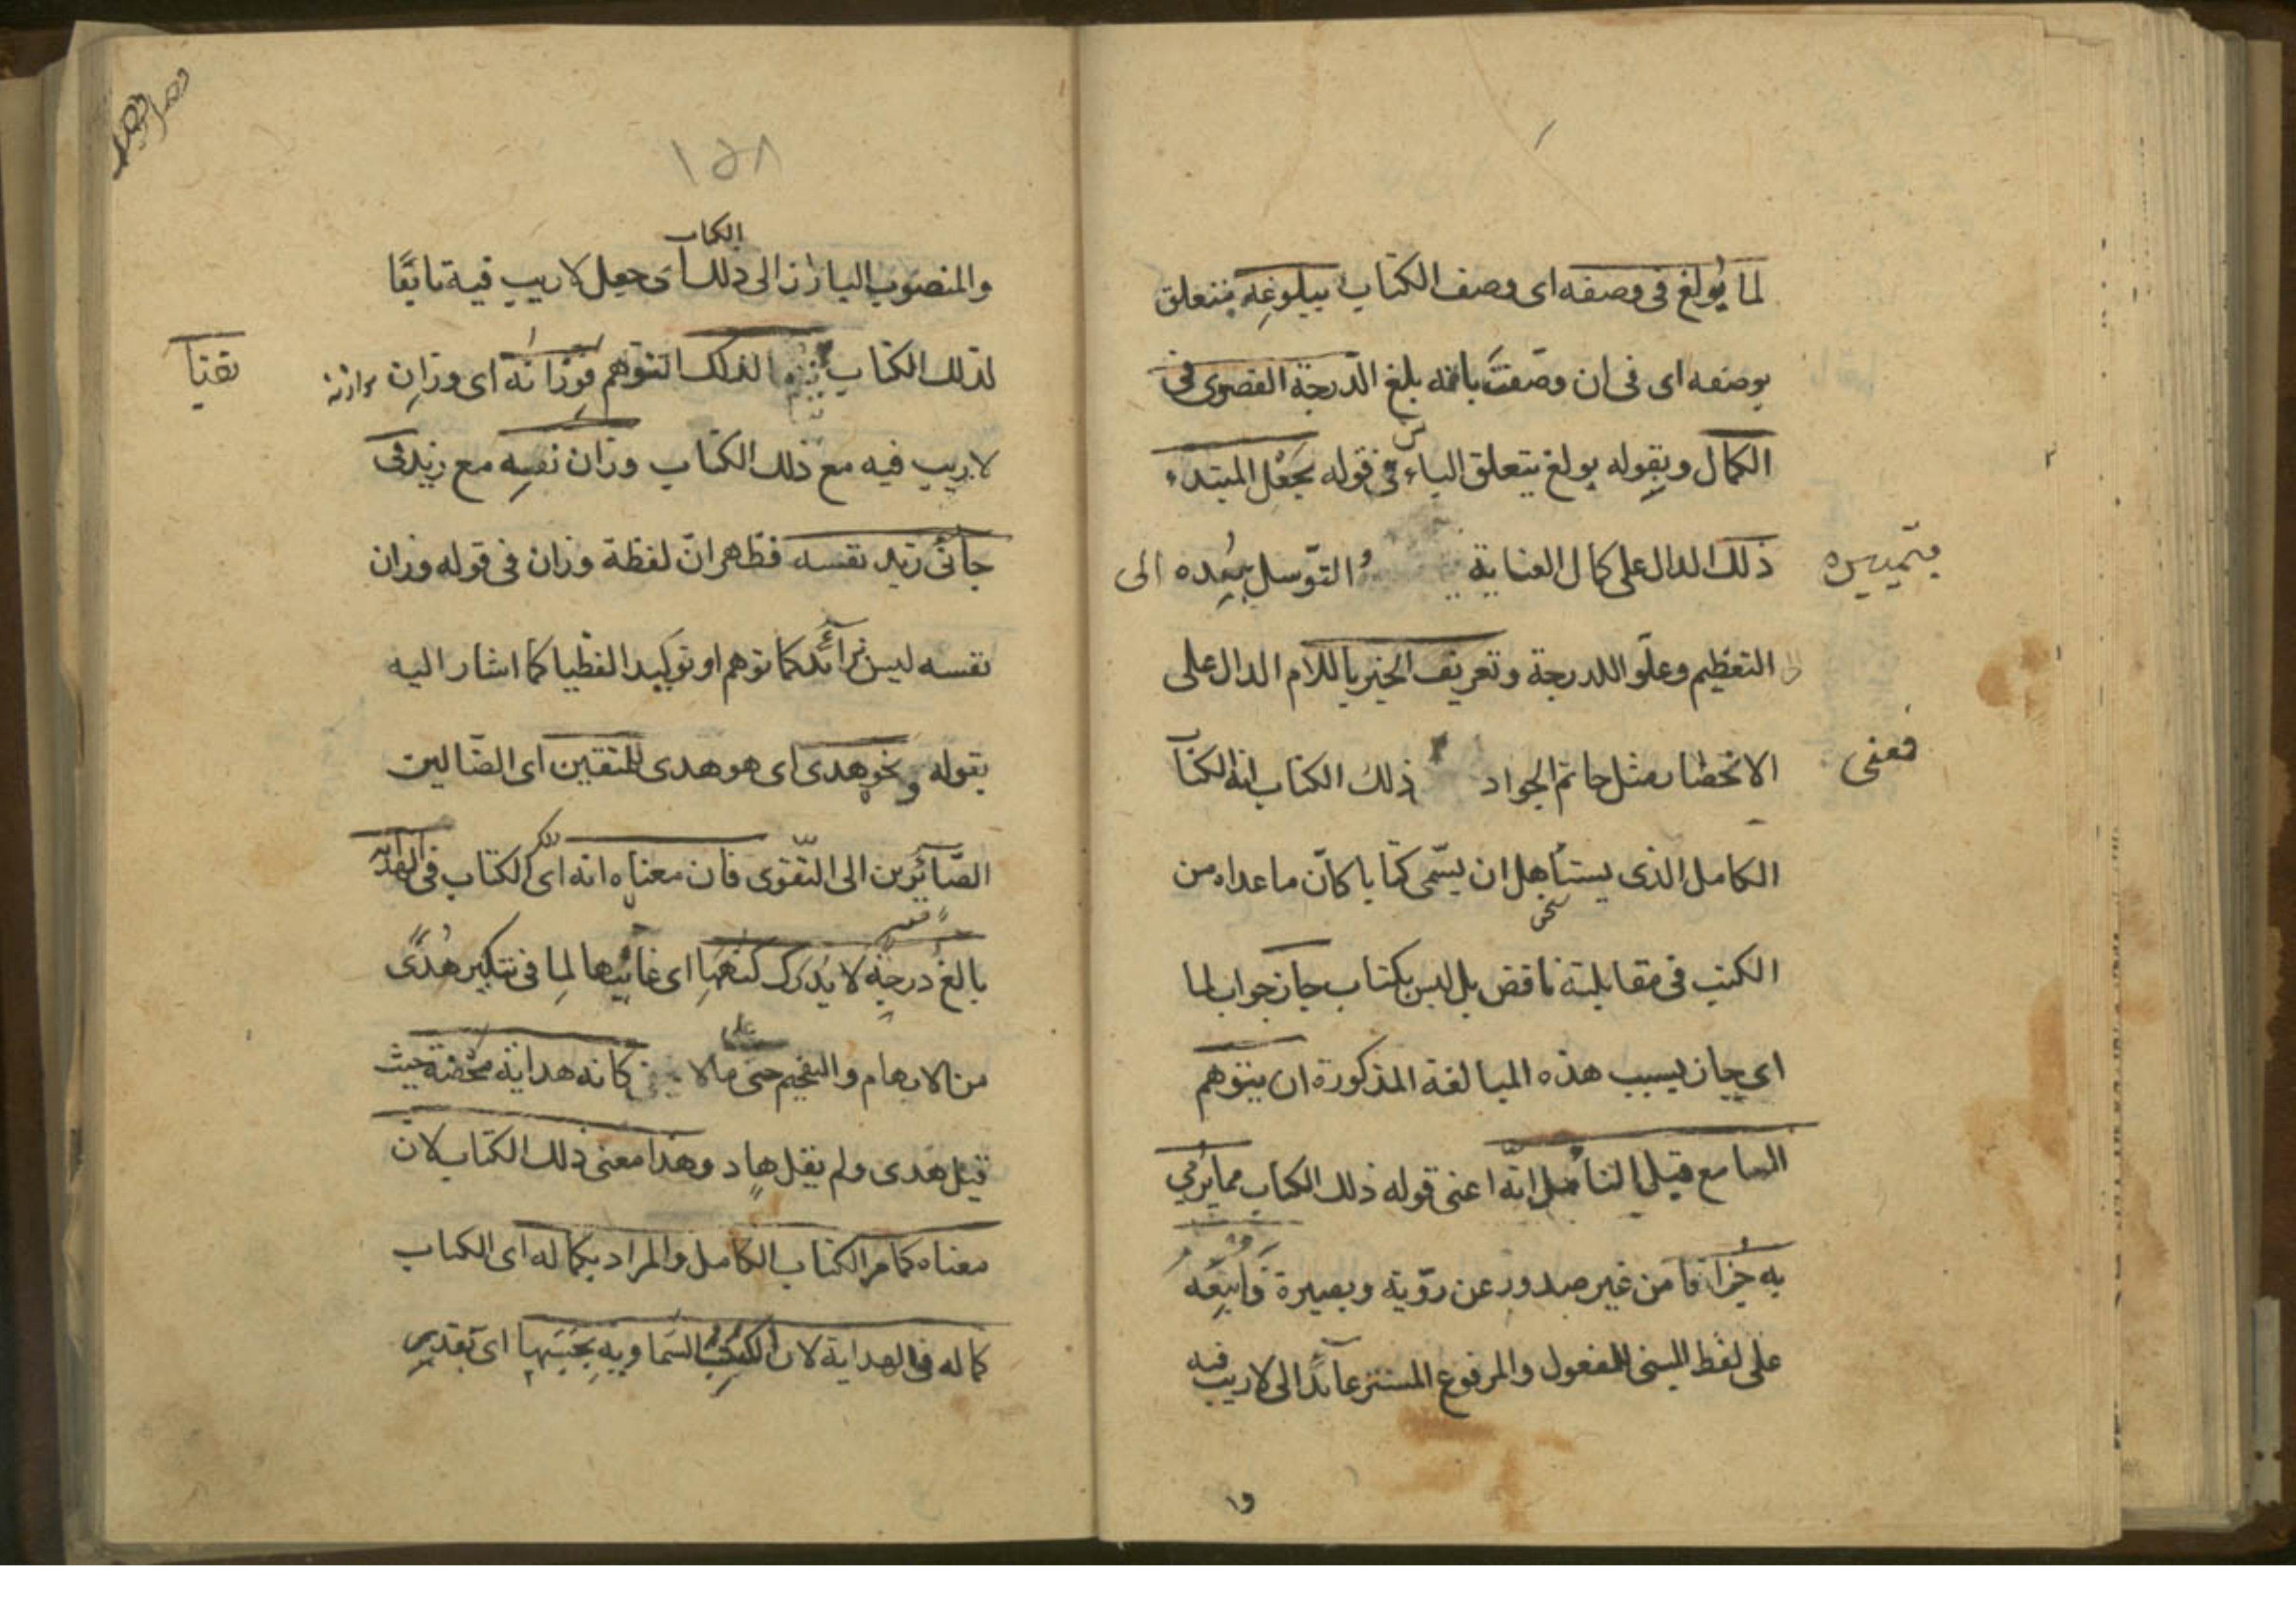 لما بُولغ فى وصفه اى وصف الكتاب ببلوغه يتعلق
بوصفه اى فى ان وصف بانه بلغ الدرجة القصوى فى
الكمال وبقوله بولغ يتعلق الباء فى قوله بجعل المبتدء
ذلك الدال على كمال العناية
بتمييزه
والتوسل ببُعده الى
التعظيم وعلو الدرجة وتعريف الخبر باللام الدال على
الانحصار مثل حاتم الجواد
فمعنى
ذلك الكتاب انه الكتا
الكامل الذى يستأهل ان يسمى كتابا كانّ ماعداه من
الكتب فى مقابلته ناقص بل ليس بكتاب جاز جواب لما
اى جاز بسبب هذه المبالغة المذكورة ان يتوهم
السامع قبل التأمل انّه اعنى قوله ذلك الكتاب مما يُرمى
به جُزافا من غير صدور عن رويّة وبصيرة فاتبعه
على لفظ المبنى للمفعول والمرفوع المستتر عائد الى لاريب فيه
وا
١٥٨
الكتاب
والمنصوب البارز الى ذلك اى جعل لاريب فيه تابعًا
لذلك الكتاب
نفيا
لذلك التوهم فوزانه اى وزان
لاريب فيه مع ذلك الكتاب وزان نفسه مع زيد فى
جاءنى زيد نفسه فظهر انّ لفظة وزان فى قوله وزان
نفسه ليس بزائد كما توهم او توكيدا لفظيا كما اشار اليه
بقوله ونحو هدى اى هو هدى للمتقين اى الضالين
الصّائرين الى التقوى فان معناه انه اى الكتاب فى الهداية
بالغ درجة لا يُدرك كنهها اى غايتها لِما فى تنكير هُدًى
من الابهام والتفخيم حتى
كانه هداية محضة حيث
قيل هدى ولم يقل هادٍ وهذا معنى ذلك الكتاب لانّ
معناه كما مر الكتاب الكامل والمراد بكماله اى الكتاب
كماله فى الهداية لان الكتب السماوية بحسبها اى بقدر